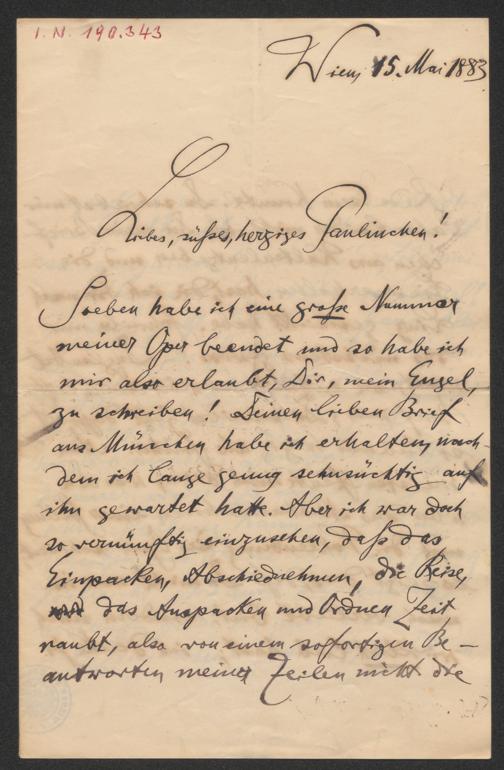 I. N. 190.343
Wien, 15. Mai 1883
Liebes, süßes, herziges Paulinchen!
Soeben habe ich eine große Nummer
meiner Oper beendet und so habe ich
mir also erlaubt, Dir, mein Engel,
zu schreiben! Deinen lieben Brief
aus München habe ich erhalten, nach-
dem ich lange genug sehnsüchtig auf
ihn gewartet hatte. Aber ich war doch
so vernünftig einzusehen, daß das
Einpacken, Abschiednehmen, die Reise,
das Auspacken und Ordnen Zeit
raubt, also von einem sofortigen Be-
antworten meiner Zeilen nicht die